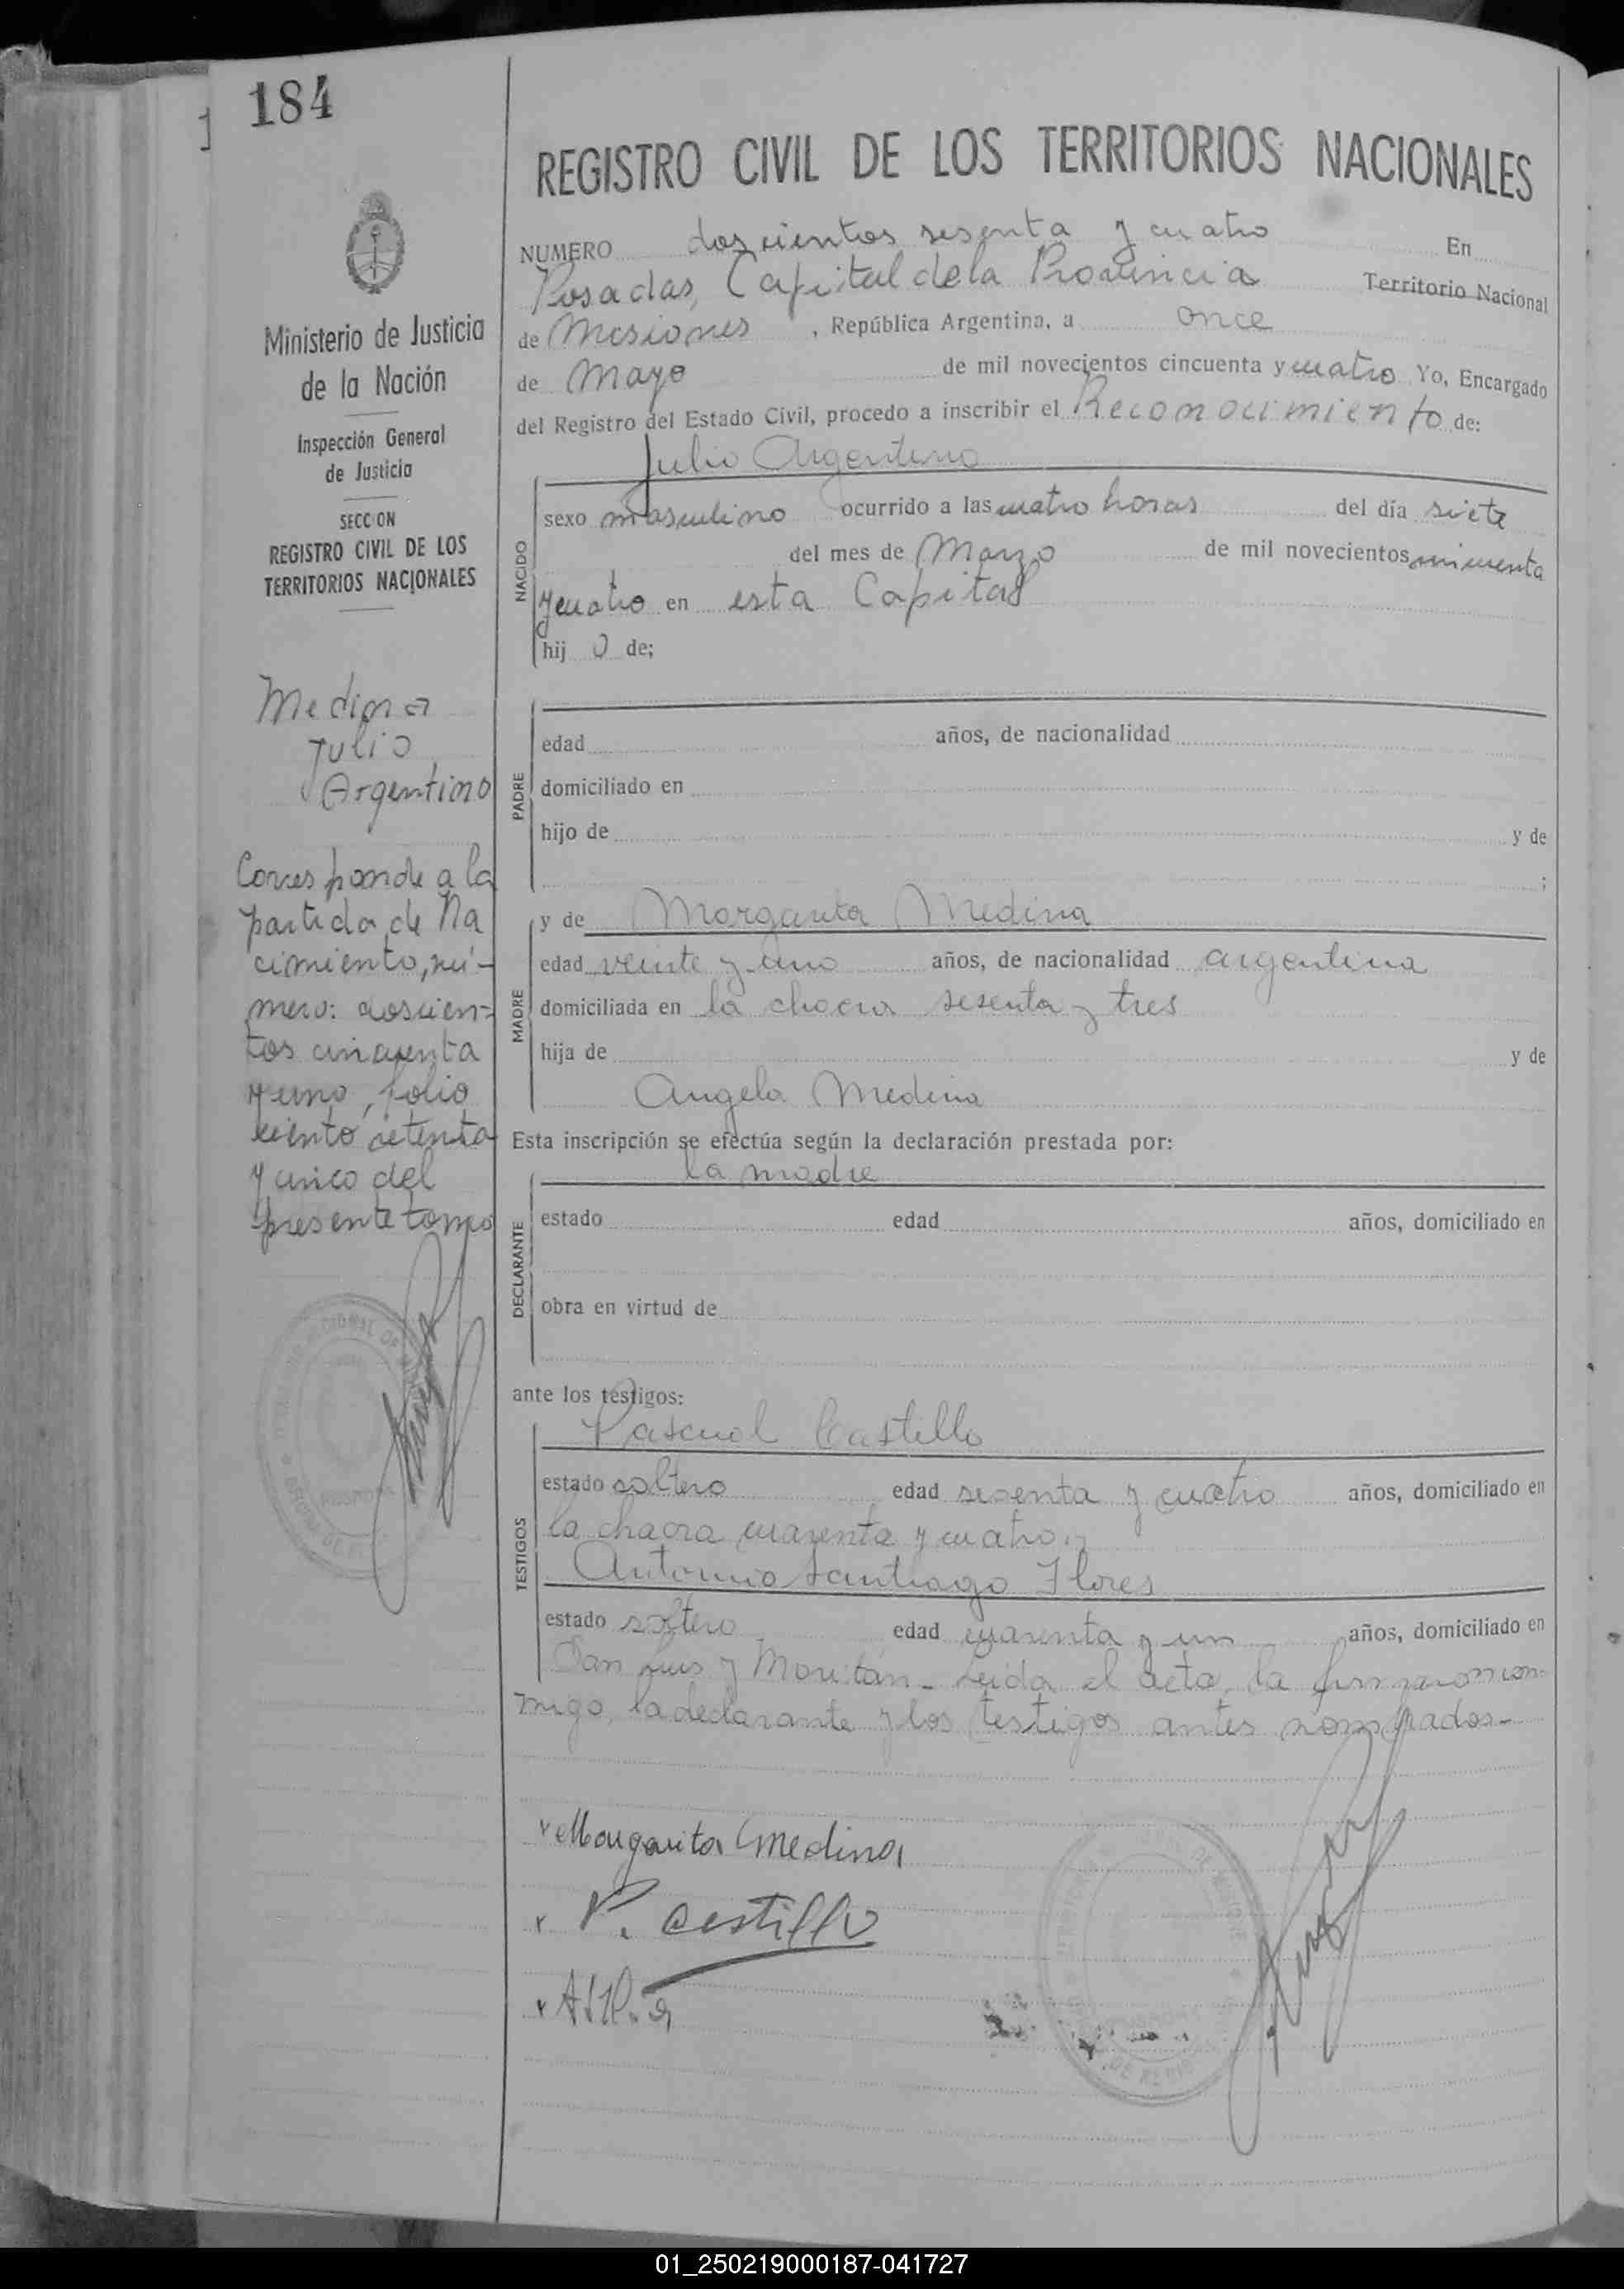 184
REGISTRO CIVIL DE LOS TERRITORIOS NACIONALES
NUMERO doscientos sesenta y cuatro En
Posadas, Capital de la Provincia Territorio Nacional
de Misiones, República Argentina, a once
de Mayo de mil novecientos cincuenta y cuatro Yo, Encargado
del Registro del Estado Civil, procedo a inscribir el Reconocimiento de:
Julio Argentino
NACIDO
sexo masculino ocurrido a las cuatro horas del día siete
del mes de Marzo de mil novecientos cincuenta
y cuatro en esta Capital
hijo de;
PADRE
edad años, de nacionalidad
domiciliado en
hijo de y de
;
MADRE
y de Margarita Medina
edad veinte y uno años, de nacionalidad argentina
domiciliada en la chacra sesenta y tres
hija de y de
Angela Medina
Esta inscripción se efectúa según la declaración prestada por:
la madre
DECLARANTE
estado edad años, domiciliado en
obra en virtud de
ante los testigos:
TESTIGOS
Pascual Castillo
estado soltero edad sesenta y cuatro años, domiciliado en
la chacra cuarenta y cuatro.-
Antonio Santiago Flores
estado soltero edad cuarenta y un años, domiciliado en
San Luis y Moritán - Leída el acta, la firmaron con-
migo, la declarante y los testigos antes nombrados-
Margarita Medina
P. Castillo
Ministerio de Justicia
de la Nación
Inspección General
de Justicia
SECCION
REGISTRO CIVIL DE LOS
TERRITORIOS NACIONALES
Medina
Julio
Argentino
Corresponde a la
partida de Na
cimiento, nú-
mero: doscien-
tos cincuenta
y uno, folio
ciento setenta
y cinco del
presente tomo
01_250219000187-041727